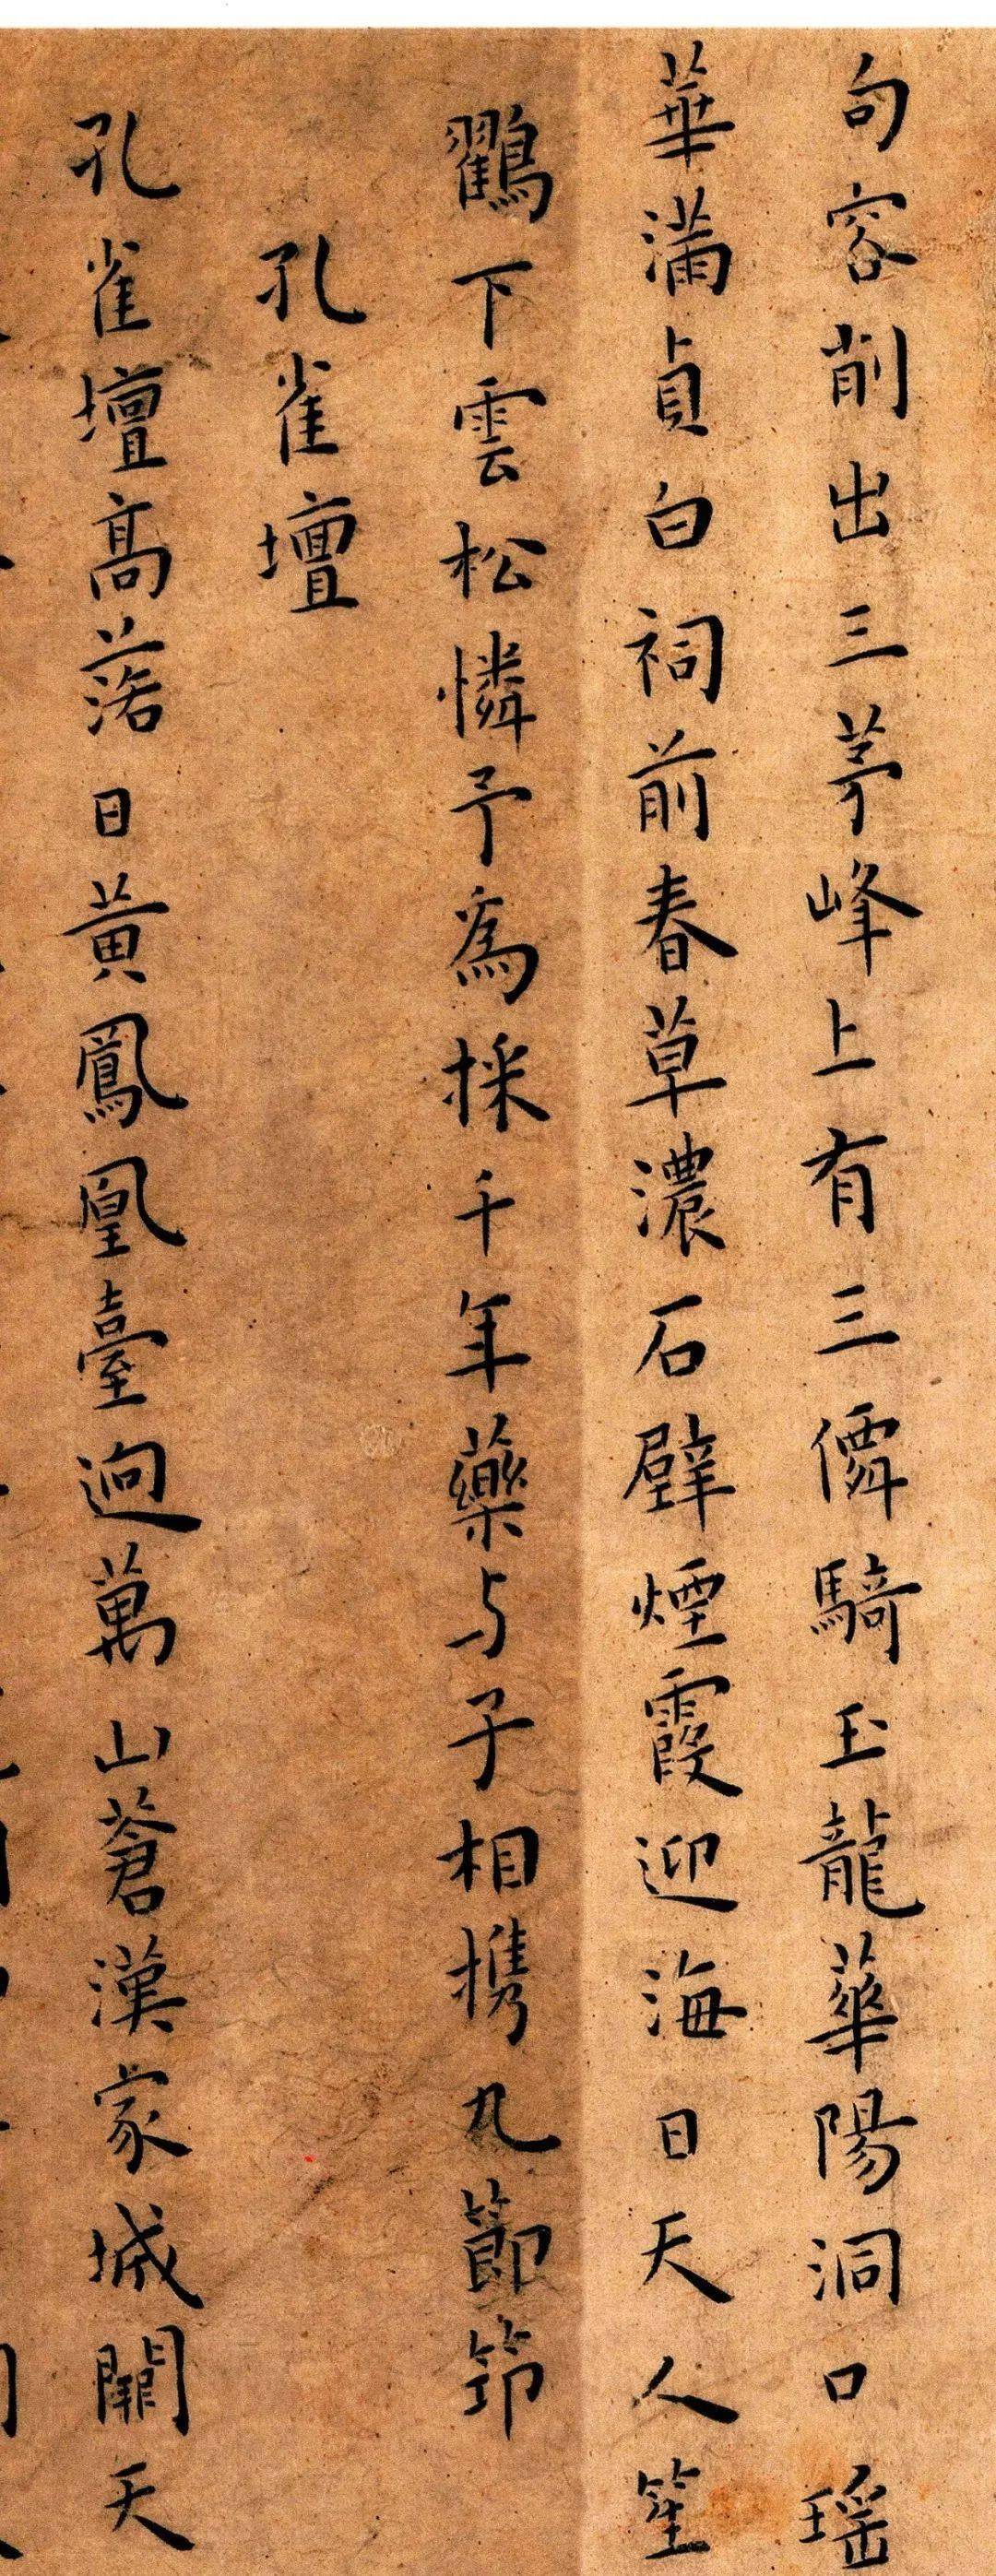 句容削出三茅峰上有三僊騎玉龍華陽洞口瑶
華滿貞白祠前春草濃石壁煙霞迎海日天人笙
鸖下雲松憐予為採千年藥与子相携九節筇
孔雀壇
孔雀壇高落日黄鳳凰臺迥萬山蒼漢家城闕天